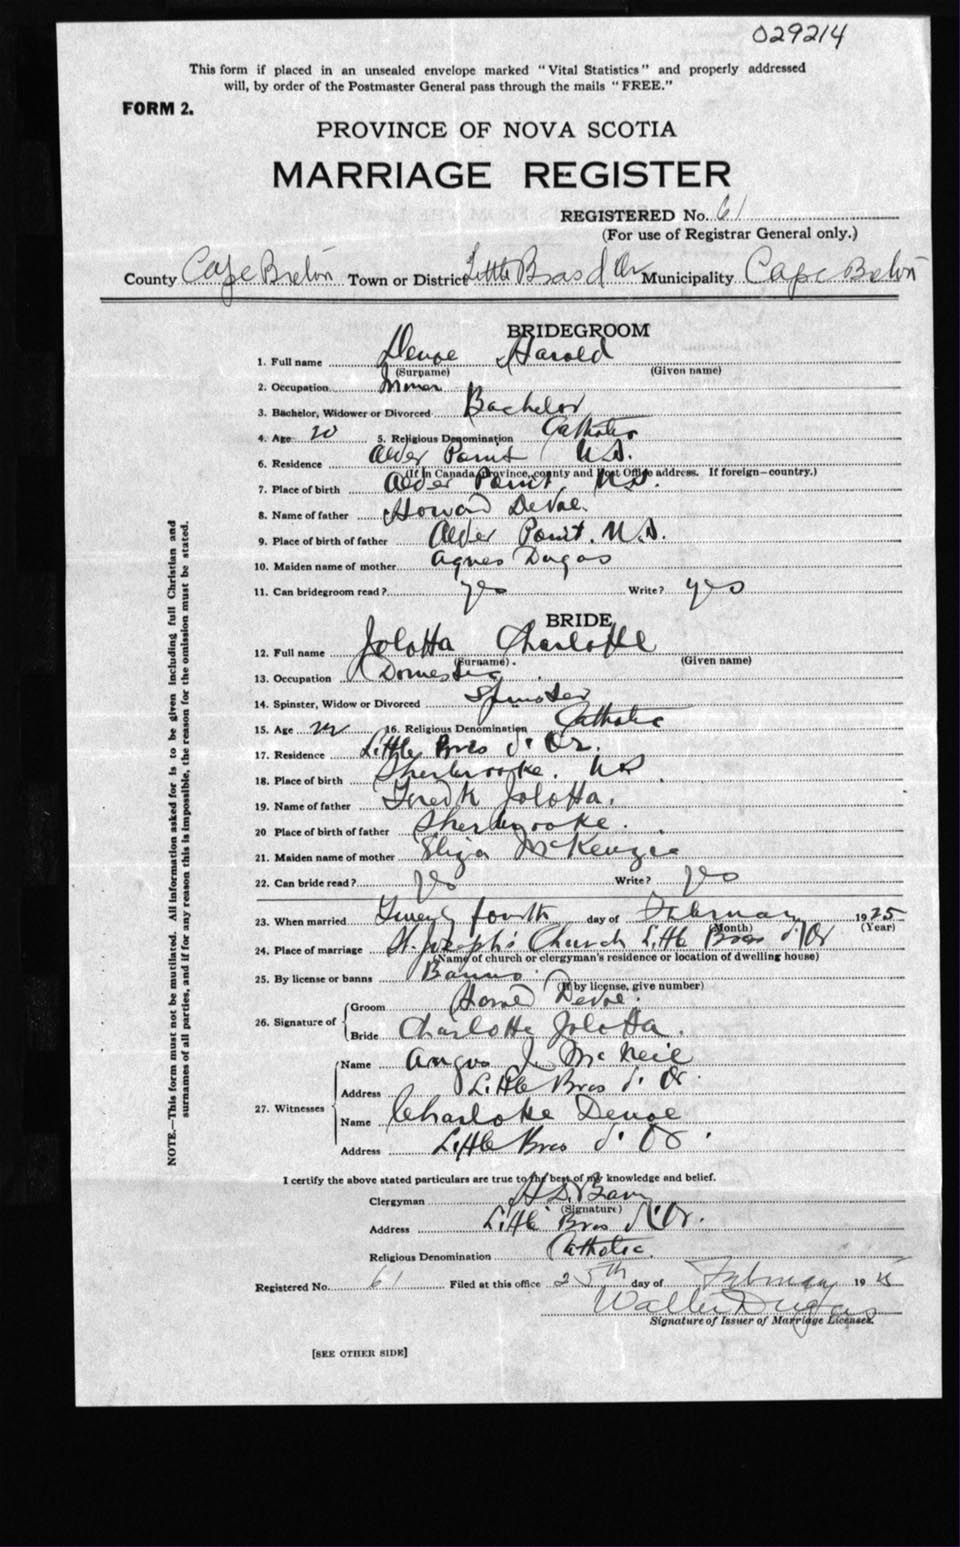 029214
This form if placed in an unsealed envelope marked "Vital Statistics" and properly addressed
will, by order of the Postmaster General pass through the mails "FREE."
FORM 2.
PROVINCE OF NOVA SCOTIA
MARRIAGE REGISTER
REGISTERED No. 61
(For use of Registrar General only.)
County Cape Breton Town or District Little Bras d'Or Municipality Cape Breton
BRIDEGROOM
1. Full name Devoe Harold
(Surname) (Given name)
2. Occupation
3. Bachelor, Widower or Divorced Bachelor
4. Age 20 5. Religious Denomination Catholic
6. Residence Alder Point N.S.
(If in Canada, province, county and Post Office address. If foreign—country.)
7. Place of birth Alder Point N.S.
8. Name of father Howard DeVoe
9. Place of birth of father Alder Point. N.S.
10. Maiden name of mother Agnes Dugas
11. Can bridegroom read? yes Write? yes
BRIDE
12. Full name Jolotta Charlotte
(Surname). (Given name)
13. Occupation Domestic
14. Spinster, Widow or Divorced Spinster
15. Age 16. Religious Denomination Catholic
17. Residence Little Bras d'Or.
18. Place of birth Sherbrooke. N.S.
19. Name of father Fred k Jolotta.
20 Place of birth of father Sherbrooke.
21. Maiden name of mother Eliza McKenzie
22. Can bride read? yes Write? yes
23. When married Twenty fourth day of February 1925
(Month) (Year)
24. Place of marriage St. Joseph's Church Little Bras d'Or
(Name of church or clergyman's residence or location of dwelling house)
25. By license or banns Banns.
(If by license, give number)
26. Signature of Groom Harold Devoe.
Bride Charlotte Jolotta.
27. Witnesses Name Angus J. McNeil
Address Little Bras d'Or.
Name Charlotte Devoe
Address Little Bras d'Or.
I certify the above stated particulars are true to the best of my knowledge and belief.
Clergyman
(Signature)
Address Little Bras d'Or.
Religious Denomination Catholic.
Registered No. 61 Filed at this office 25th day of February 19
Walter Dugas
Signature of Issuer of Marriage Licenses.
[SEE OTHER SIDE]
NOTE.—This form must not be mutilated. All information asked for is to be given including full Christian and
surnames of all parties, and if for any reason this is impossible, the reason for the omission must be stated.